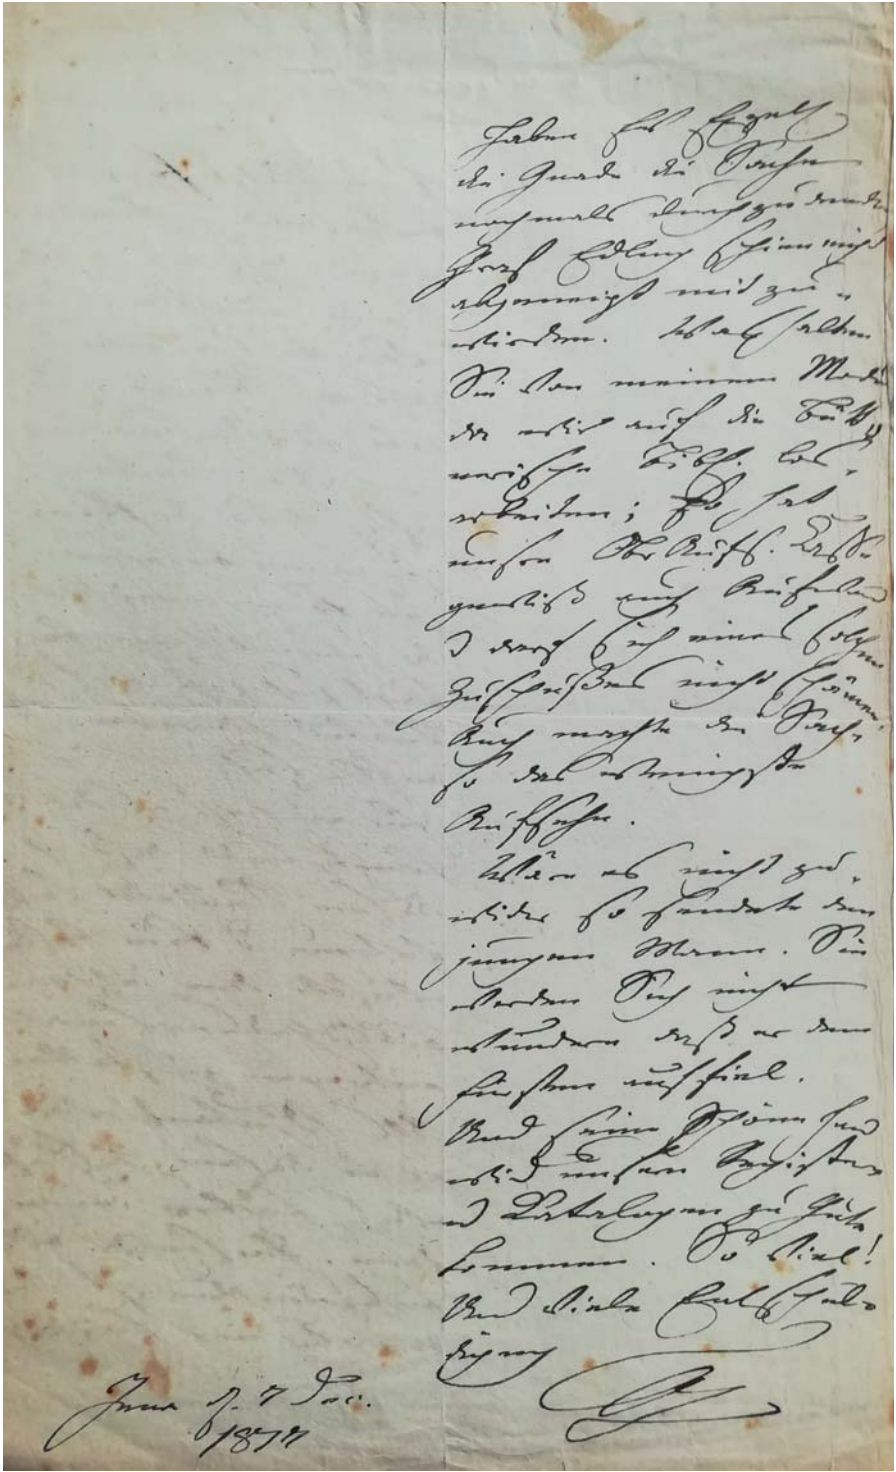 Haben Ew Exzell
die Gnade die Sache
nochmals durchzudenken
Graf Edling schien nicht
abgeneigt mit zu
wircken. Was halten
Sie von meinem
da wir auf die Bütt
nerische Bibl. los
arbeiten; So hat
unsre Ob Aufs. Casse
gewiß auch Aufwand
u darf sich eines solchen
Zuschußes nicht schämen.
Auch machte die Sache
so das wenigste
Aufsehn.
Wär es nicht zu
wider so sendete den
jungen Mann. Sie
werden Sich nicht
wundern daß er dem
Fürsten auffiel.
Und seine schöne Hand
wird unsern Registern
u Catalogen zu Gute
kommen. So viel!
Und viele Entschul-
digung
G
Jena d. 7 Dec.
1817